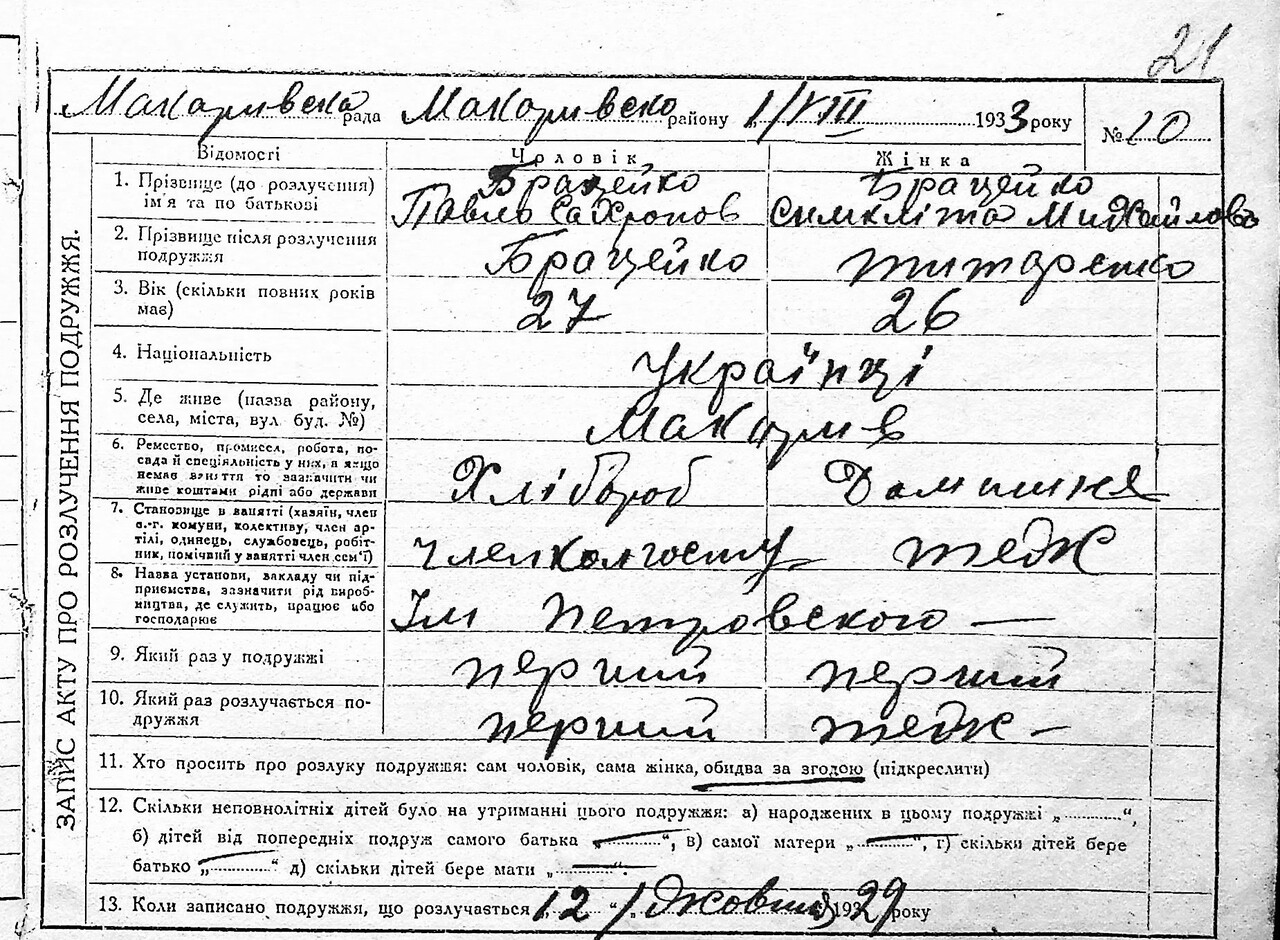 21
Макаривска рада Макаривско району 1/VIII 1933 року № 10
ЗАПИС АКТУ ПРО РОЗЛУЧЕННЯ ПОДРУЖЖЯ.
Відомості Чоловік Жінка
1. Прізвище (до розлучення) Брацейко Брацейко
ім'я та по батькові Павль
2. Прізвище після розлучення
подружжя Брацейко титаренко
3. Вік (скільки повних років
має) 27 26
4. Національність українці
5. Де живе (назва району,
села, міста, вул. буд. №) Макарив
6. Ремество, промисел, робота, по-
сада й спеціяльність у них, а якщо
немає вняття то зазначити чи
живе коштами рідні або держави Хлібороб Домашня
7. Становище в занятті (хазяїн, член
с.-г. комуни, колективу, член ар-
тілі, одинець, службовець, робіт-
ник, помічний у занятті член сем'ї) член колгоспу тедж
8. Назва установи, закладу чи під-
приємства, зазначити рід вироб-
ництва, де служить, працює або
господарює Ім Петровского —
9. Який раз у подружжі перший перший
10. Який раз розлучається по-
дружжя перший тедж —
11. Хто просить про розлуку подружжя: сам чоловік, сама жінка, обидва за згодою (підкреслити)
12. Скільки неповнолітніх дітей було на утриманні цього подружжя: а) народжених в цьому подружжі „ “,
б) дітей від попередніх подруж самого батька „ — “, в) самої матери „ — “, г) скільки дітей бере
батько „ — “ д) скільки дітей бере мати „ — “.
13. Коли записано подружжя, що розлучається 12 / джовтня 1929 року